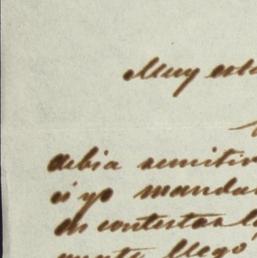 Muy est
debia remitir
si yo manda
en contestar
llego